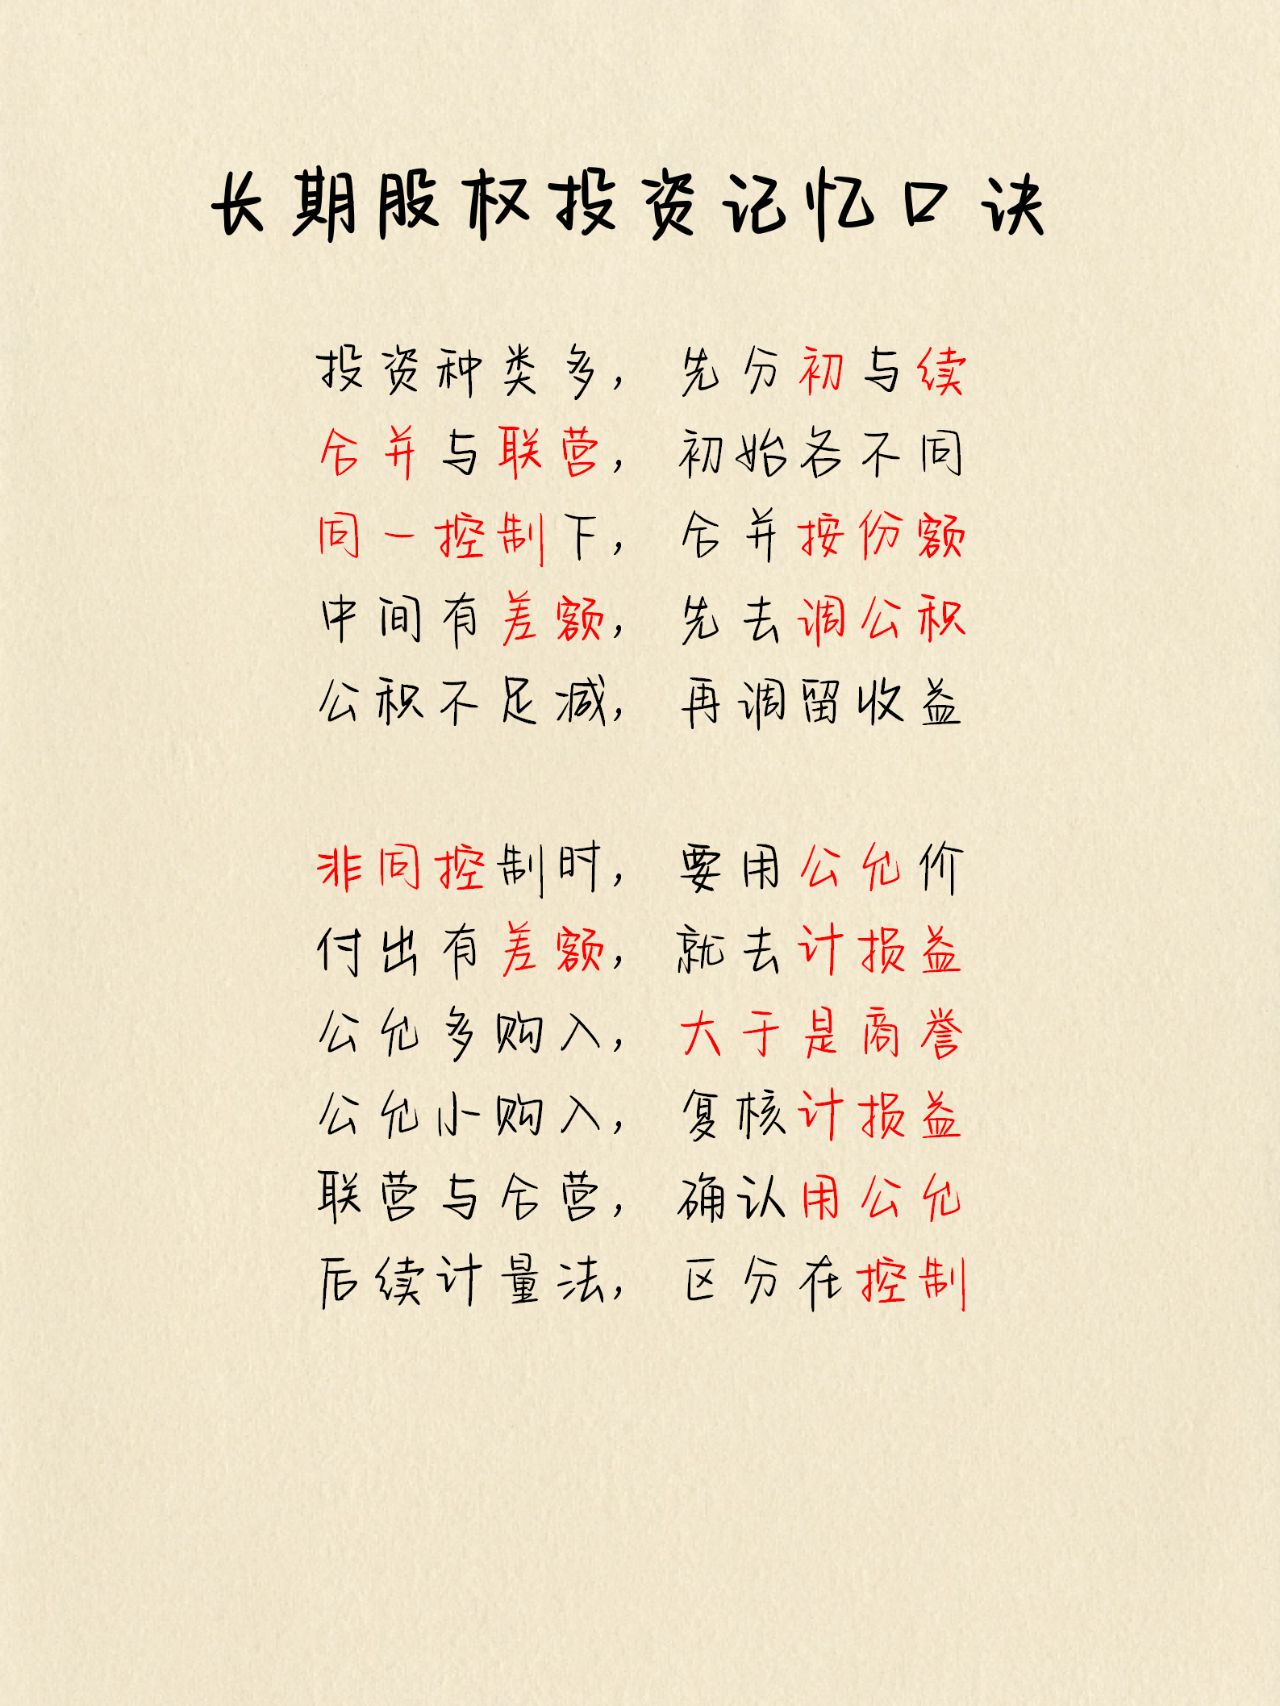 长期股权投资记忆口诀
投资种类多，先分初与续
合并与联营，初始各不同
同一控制下，合并按份额
中间有差额，先去调公积
公积不足减，再调留收益
非同控制时，要用公允价
付出有差额，就去计损益
公允多购入，大于是商誉
公允小购入，复核计损益
联营与合营，确认用公允
后续计量法，区分在控制